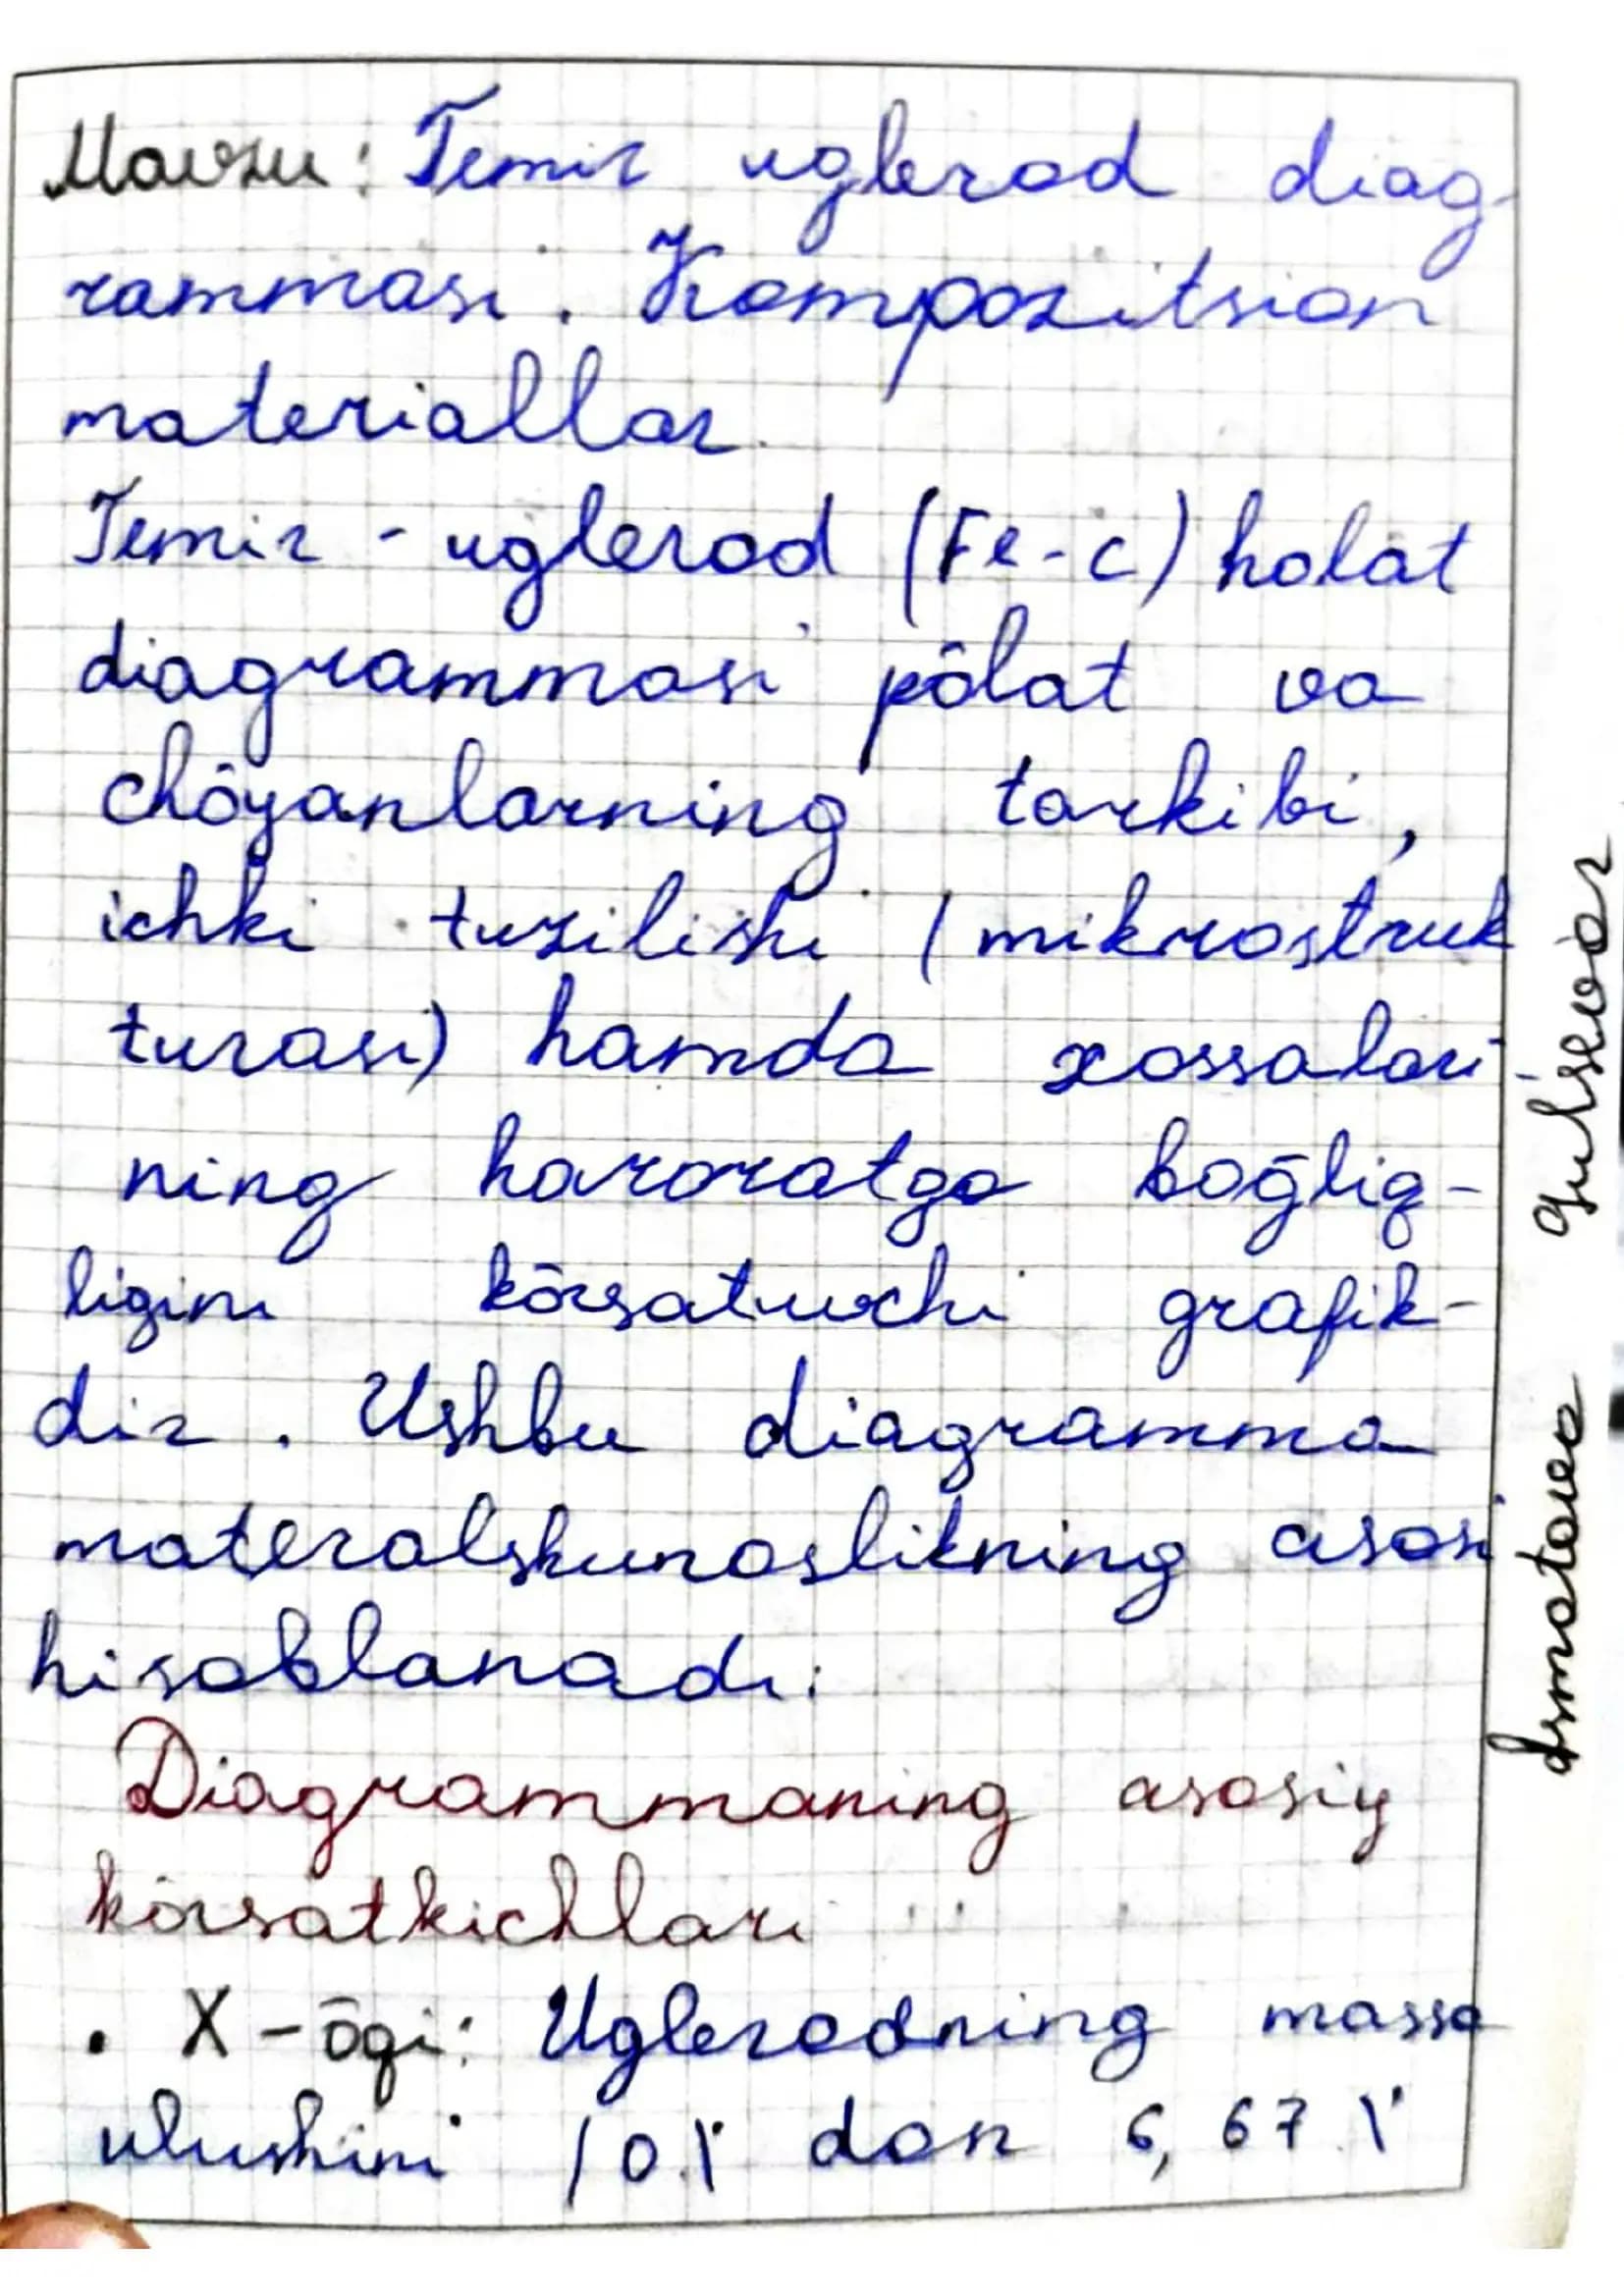 Mavzu: Temir uglerod diag-
rammasi. Kompozitsion
materiallar.
Temir - uglerod (Fe-C) holat
diagrammasi pōlat va
chōyanlarning tarkibi,
ichki tuzilishi (mikrostruk
turasi) hamda xossalari-
ning haroratga boḡliq-
ligini kōrsatuvchi grafik-
dir. Ushbu diagramma
materalshunoslikning asosi
hisoblanadi:
Diagrammaning asosiy
kōrsatkichlari
• X-ōqi: Uglerodning massa
ulushini (0% dan 6,67%
Ismatova Gulsevar